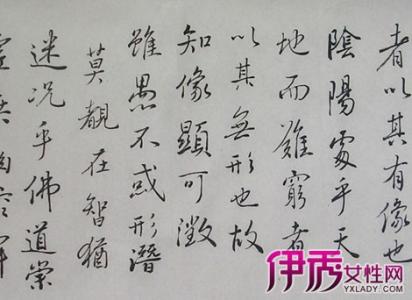 者以其有像也
陰陽處乎天
地而難窮者
以其無形也故
知像顯可徵
雖愚不惑形潛
莫覩在智猶
迷況乎佛道崇
伊秀女性网
YXLADY.COM